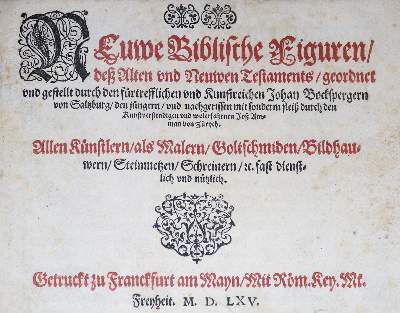 Neuwe Biblische Figuren/
deß Alten vnd Neuwen Testaments/ geordnet
vnd gestellt durch den fürtrefflichen vnd Kunstreichen Johan Bockspergern
von Saltzburg/ den jüngern/ vnd nachgerissen mit sonderm fleiß durch den
Kunstverstendigen vnd wolerfahrnen Joß Am-
man von Zürych.
Allen Künstlern/ als Malern/ Goltschmiden/ Bildhau-
wern/ Steinmetzen/ Schreinern/ ꝛc. fast dienst-
lich vnd nützlich.
Getruckt zu Franckfurt am Mayn/ Mit Röm. Key. Mt.
Freyheit. M. D. LXV.